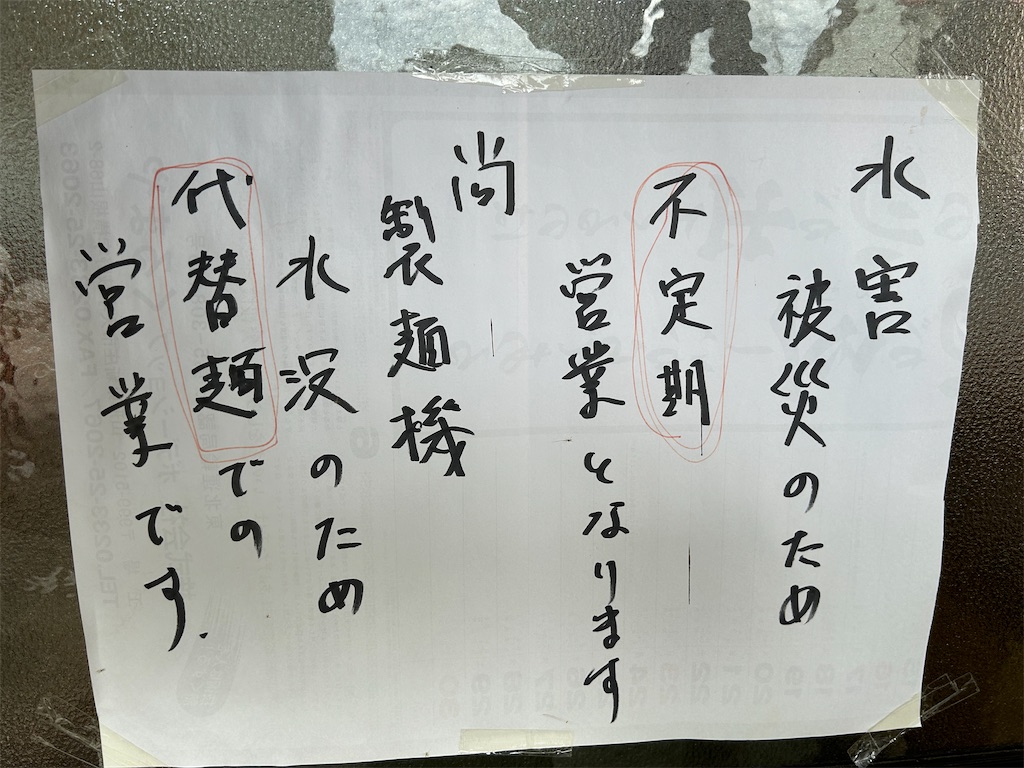 水害
被災のため
不定期
営業となります
尚
製麺機
水没のため
代替麺での
営業です.